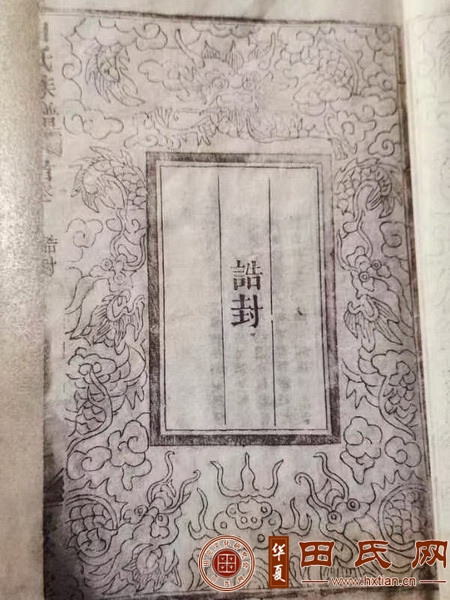 誥封
氏族譜
誥封
华夏
田氏网
www.hxtian.cn